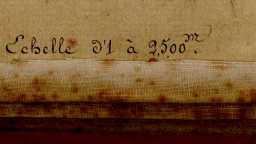 Echelle d'1 à 2,500m.